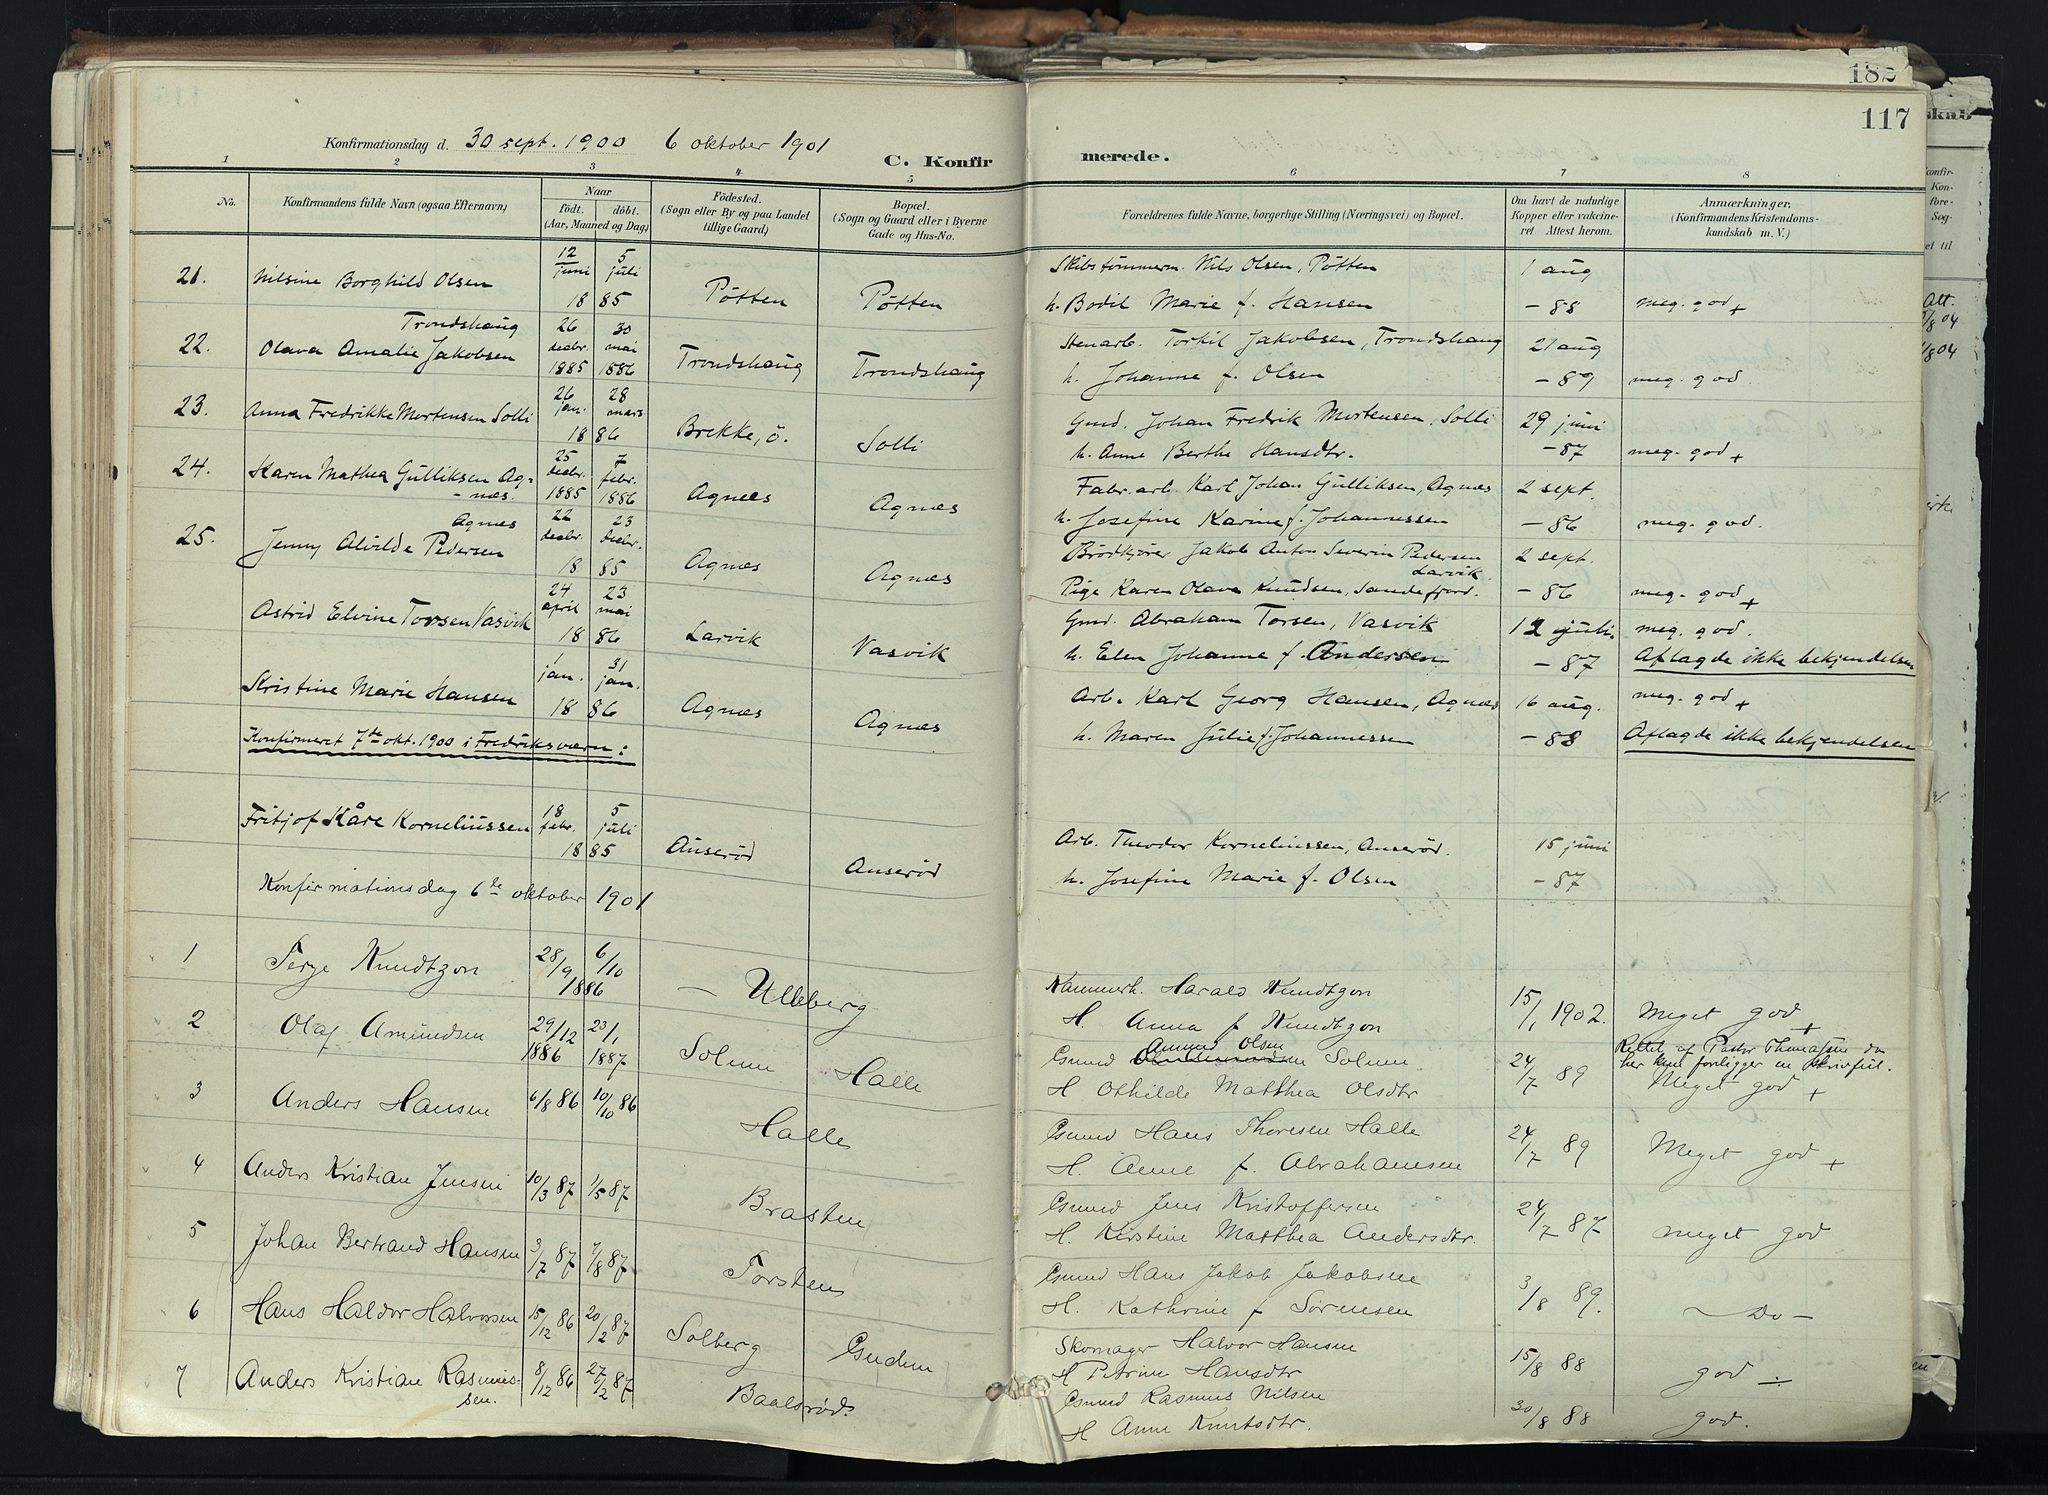 182
117
Konfirmationsdag d. 30 sept. 1900 6 oktober 1901
C. Konfirmerede.
1 2 3 4 5 6 7 8
No.
Konfirmandens fulde Navn (ogsaa Efternavn)
Naar
födt. döbt.
(Aar, Maaned og Dag)
Födested.
(Sogn eller By og paa Landet
tillige Gaard)
Bopæl.
(Sogn og Gaard eller i Byerne
Gade og Hus-No.
Forældrenes fulde Navne, borgerlige Stilling (Næringsvei) og Bopæl.
Om havt de naturlige
Kopper eller vakcine-
ret. Attest herom.
Anmærkninger.
(Konfirmandens Kristendoms-
kundskab m. V.)
21. Nilsine Borghild Olsen 12 juni 5 juli 1885 Pötten Pötten Skibstömmerm. Nils Olsen, Pötten 1 aug
h. Bodil Marie f. Hansen - 88 meg. god +
Trondshaug
22. Olava Amalie Jakobsen 26 decbr. 1885 30 mai 1886 Trondshaug Trondshaug Stenarb. Torkil Jakobsen, Trondshaug 21 aug
h. Johanne f. Olsen - 89 meg. god.
23. Anna Fredrikke Mortensen Solli 26 jan. 28 mars 1886 Brekke, ö. Solli Gmd. Johan Fredrik Mortensen, Solli 29 juni
h. Anne Berthe Hansdtr. - 87 meg. god +
24. Karen Mathea Gulliksen Ag-
næs. 25 decbr. 1885 7 febr. 1886 Agnæs Agnæs Fabr. arb. Karl Johan Gulliksen, Agnæs 2 sept.
h. Josefine Karine f. Johannessen - 86 meg. god.
Agnæs
25. Jenny Alvilde Pedersen 22 decbr. 23 decbr. 1885 Agnæs Agnæs Brödkjörer Jakob Anton Severin Pedersen 2 sept.
Larvik.
Pige Karen Olava Knudsen, Sandefjord. - 86 meg. god +
Astrid Elvine Torsen Vasvik 24 april 23 mai 1886 Larvik Vasvik Gmd. Abraham Torsen, Vasvik 12 juli. meg. god.
h. Elen Johanne f. Andersen - 87 Aflagde ikke bekjendelsen
Kristine Marie Hansen 1 jan. 31 jan. 1886 Agnæs Agnæs Arb. Karl Georg Hansen, Agnæs 16 aug. meg. god +
h. Maren Julie f. Johannessen - 88 Aflagde ikke bekjendelsen
Konfirmeret 7de okt. 1900 i Fredriksværn:
Fritjof Kåre Korneliussen 18 febr. 5 juli 1885 Anseröd Anseröd Arb. Theodor Korneliussen, Anseröd. 15 juni
h. Josefine Marie f. Olsen - 87
Konfirmationsdag 6te oktober 1901
1 Terje Knudtzon 28/9 6/10 1886 — Ulleberg Kammerh. Harald Knudtzon 15/1 1902. Meget god +
H. Anna f Knudtzon
2 Olaf Amundsen 29/12 1886 23/1 1887 Solum Halle Amund Olsen
Gmund Solum 24/7 89 Rettet af Pastor
H Othilde Matthea Olsdtr Meget god +
3 Anders Hansen 6/8 86 10/10 86 Halle Gmund Hans Thoresen Halle 24/7 89 Meget god +
H. Anne f. Abrahamsen
4 Anders Kristian Jensen 10/3 87 1/5 87 Brasten Gmund Jens Kristoffersen 24/7 87 meget god
H. Kirstine Matthea Andersdtr.
5 Johan Bertrand Hansen 3/7 87 7/8 87 Torsten Gmund Hans Jakob Jakobsen 3/8 89. — Do —
H. Kathrine f Sörensen
6 Hans Haldor Halvorsen 15/12 86 20/2 87 Solberg Gudem Skomager Halvor Hansen 15/8 88 god
H Petrine Hansdtr
7 Anders Kristian Rasmus-
sen. 8/12 86 27/2 87 Baalsröd. Gmund Rasmus Nilsen 30/8 88 god.
H Anne Knutsdtr.